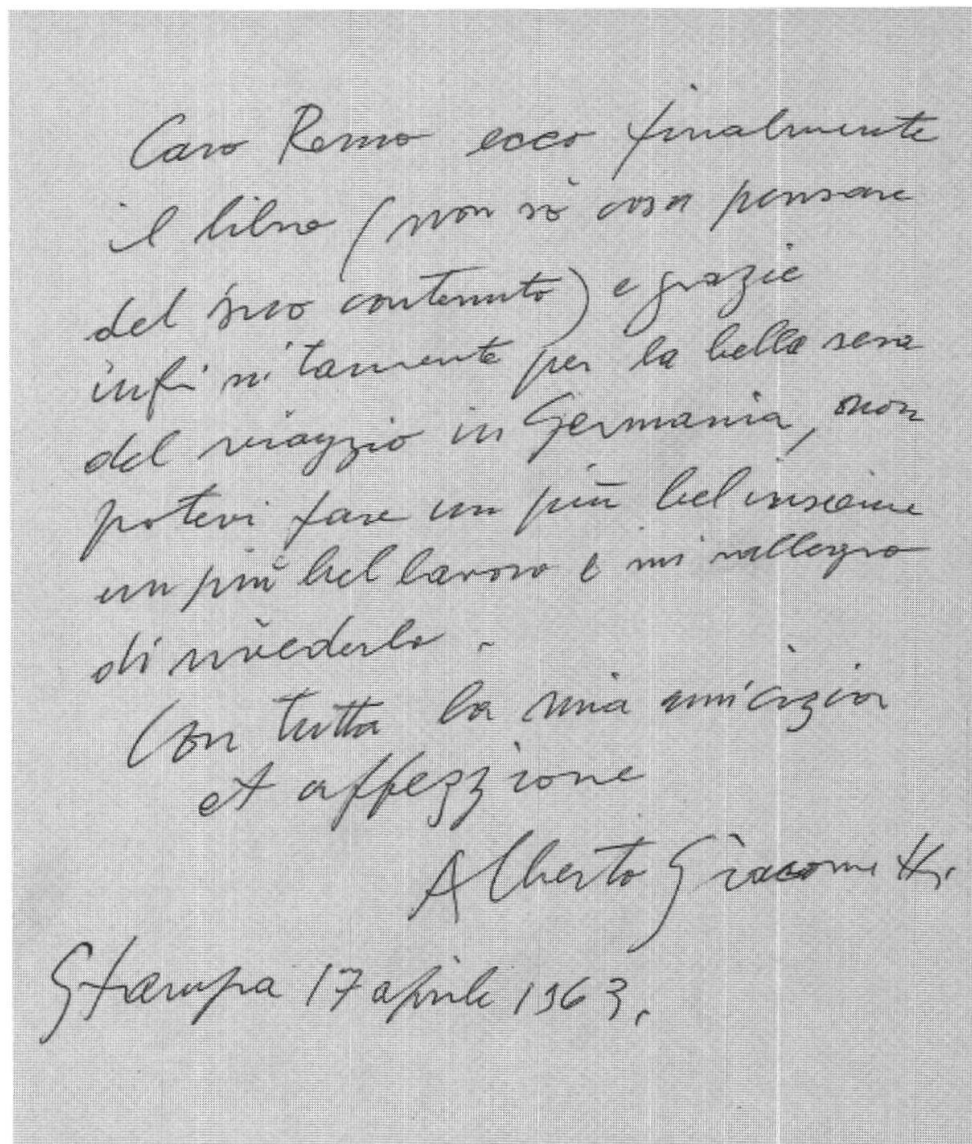 Caro Remo ecco finalmente
il libro (non sò cosa pensare
del suo contenuto) e grazie
infinitamente per la bella sera
del viaggio in Germania, non
potevi fare un più bel insieme
un più bel lavoro e mi rallegro
di rivederlo.
Con tutta la mia amicizia
et affezzione
Alberto Giacometti.
Stampa 17 aprile 1963.